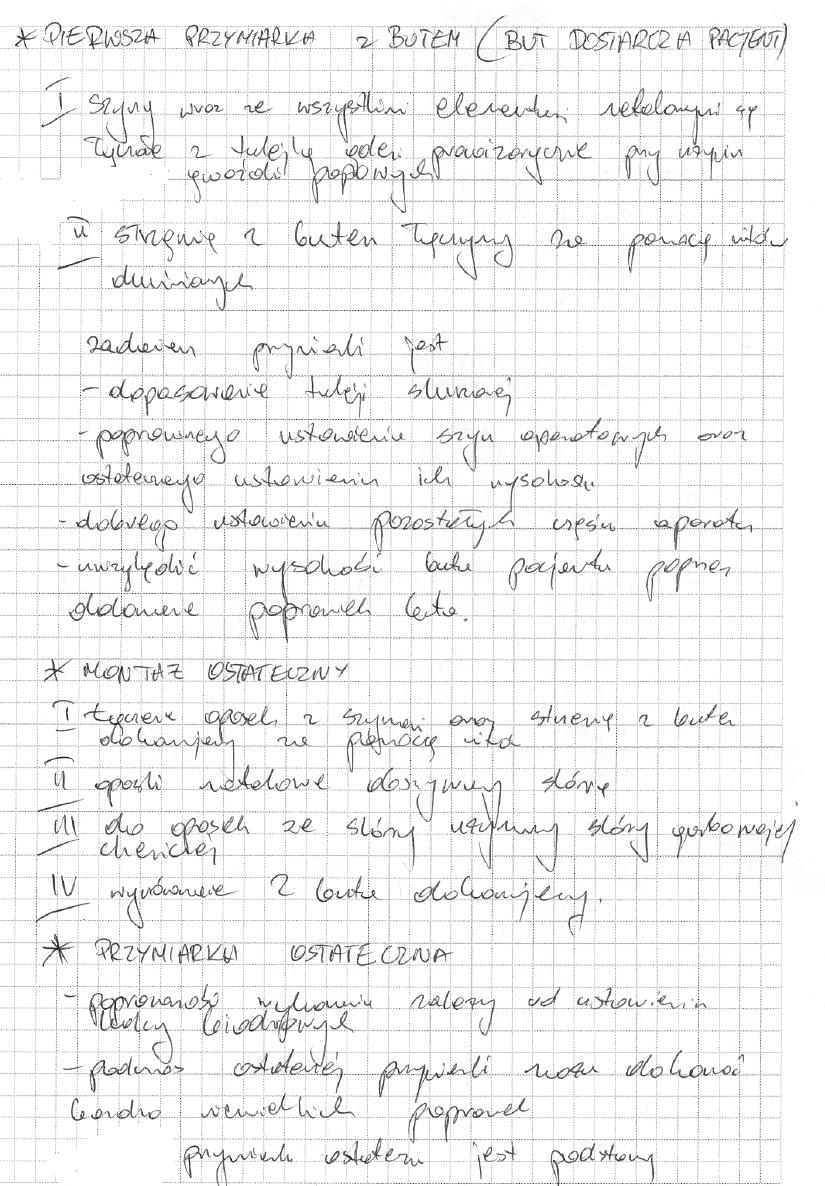 * PIERWSZA PRZYMIARKA Z BUTEM (BUT DOSTARCZA PACJENT)
I szyny wraz ze wszystkimi elementami metalowymi są
łączone z tuleją prowizorycznie przy użyciu
gwoździ papowych
II strzemię z butem łączymy za pomocą nitów
aluminiowych
zadaniem przymiarki jest
- dopasowanie tulei skórzanej
- poprawnego ustawienia szyn aparatowych oraz
ostatecznego ustawienia ich wysokości
- dobrego ustawienia pozostałych części aparatu
- uwzględnić wysokość buta pacjenta poprzez
dokonanie poprawek buta.
* MONTAŻ OSTATECZNY
I łączenie opasek z szynami oraz strzemię z butem
dokonujemy za pomocą nita
II opaski metalowe obszywamy skórą
III do opasek ze skóry używamy skóry garbowanej
IV wyrównanie z buta dokonujemy.
* PRZYMIARKA OSTATECZNA
- poprawność wykonania zależy od ustawienia
biodrowych
- podczas ostatniej przymiarki można dokonać
bardzo niewielkich poprawek
przymiarka ostateczna jest podstawą